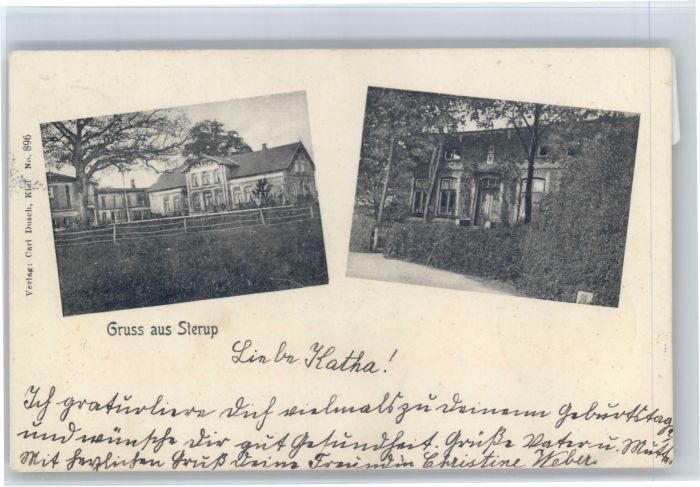 Verlag: Carl Dusch, Kiel No. 896
Gruss aus Sterup
Liebe Katha!
Ich graturliere Dich vielmals zu Deinenn Geburtstag
und wünsche Dir gut Gesundheit. Grüße Vater u. Mutter
Mit herzlichen Gruß Deine Freundin Christine Weber.